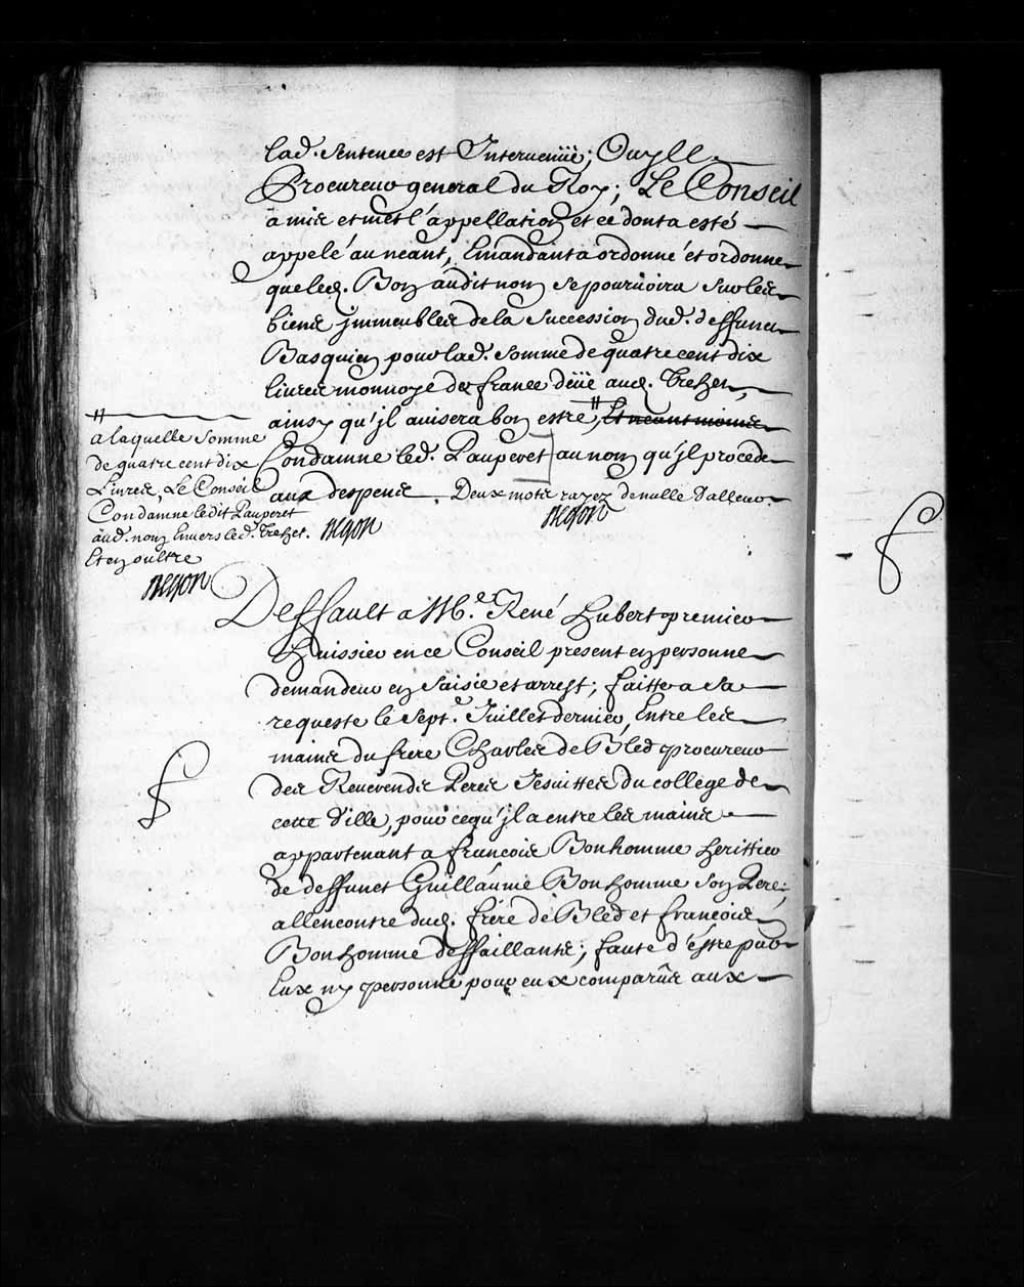 lad. Sentence est Intervenüe; Ouy Le
Procureur general du Roy; Le Conseil
a mis et met l'appellation et ce dont a esté
appelé au neant, Emandant a ordonné et ordonne
que led. Bon audit nom se pourvoira sur les
biens jmmeubles de la Succession dud. deffunct
Basquin pour lad. Somme de quatre cent dix
livres monnoye de france düe aud. Trehet,
ainsy qu'jl avisera bon estre, Et neantmoins
Condamne led. Pauperet au nom qu'jl procede
aux despens. Deux mots rayez de nulle Valleur.
Begon
Begon
a laquelle Somme
de quatre cent dix
Livres, Le Conseil
Condamne ledit Pauperet
aud. nom Envers led. Trehet.
Et en oultre
Begon
Deffault a Me. René Hubert premier
Huissier en ce Conseil present en personne
demandeur en Saisie et arrest; faitte a Sa
requeste le Sept.e Juillet dernier, Entre les
mains du frere Charles de Bled procureur
des Reverends Peres Jesuittes du college de
cette Ville, pour ce qu'jl a entre les mains
appartenant a francois Bonhomme heritier
de deffunct Guillaume Bonhomme son Pere;
allencontre dud. frere de Bled et francois
Bonhomme deffaillants; faute d'estre par
Eux ny personne pour eux comparûs aux